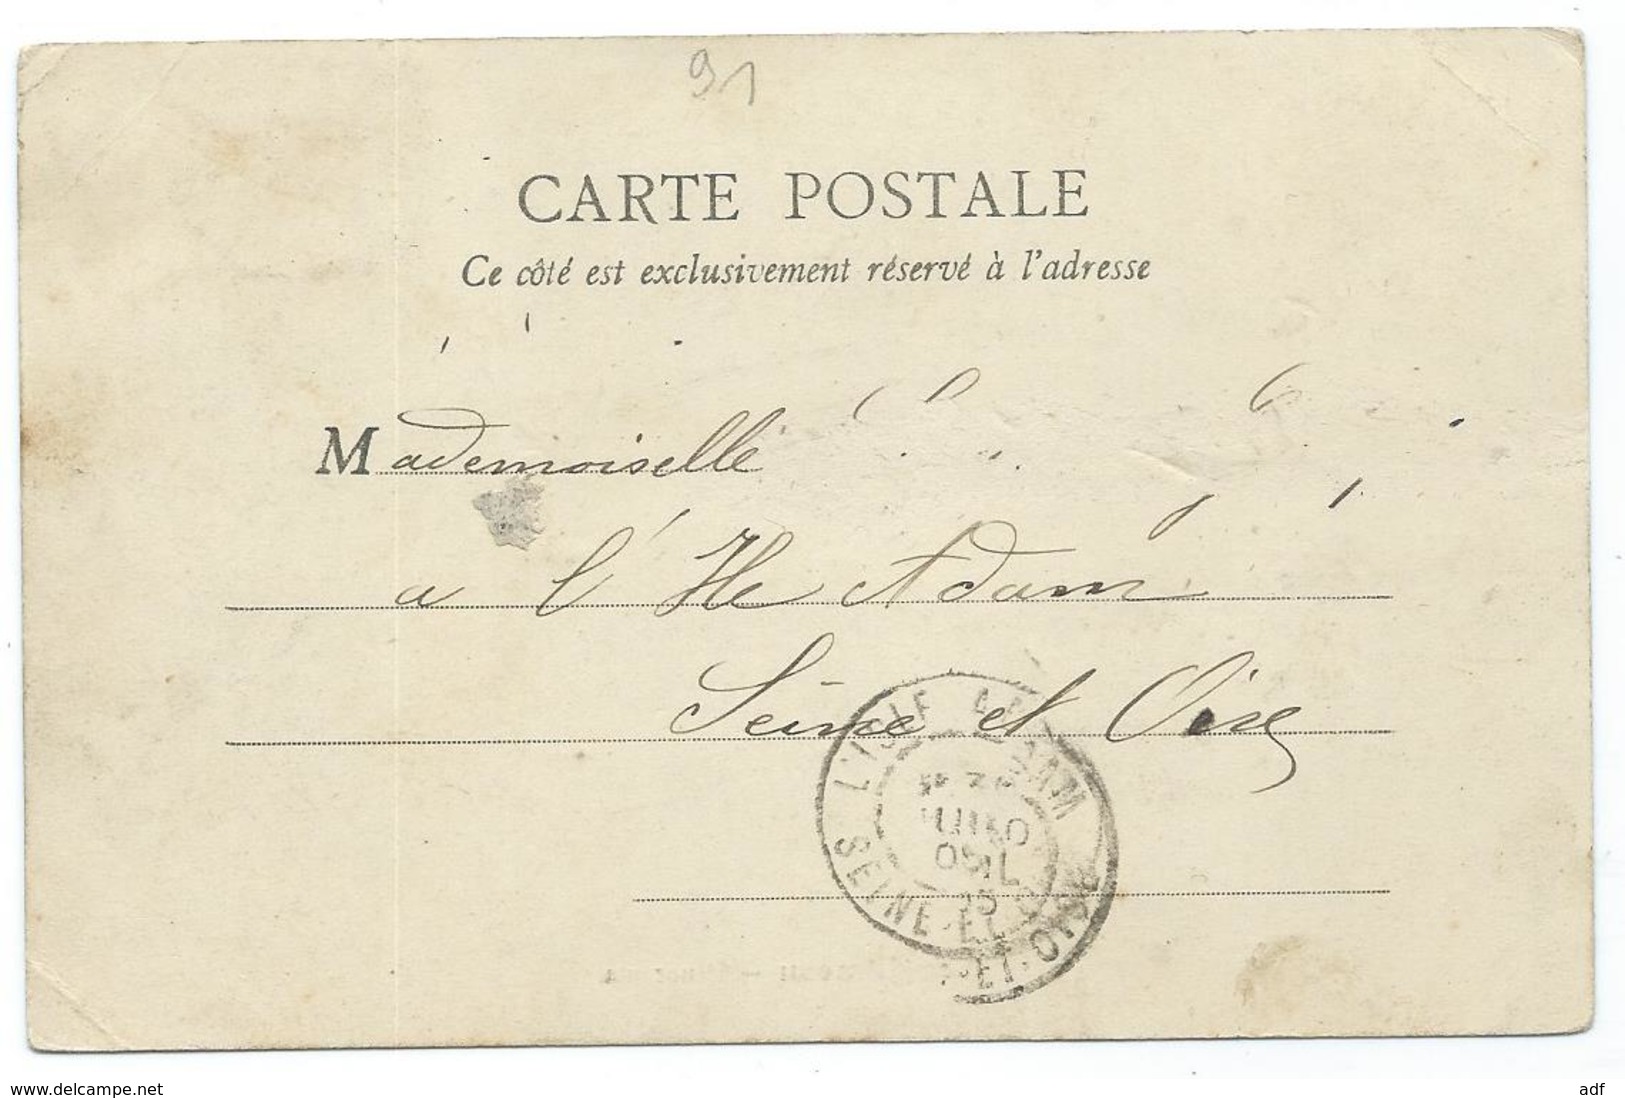 91
CARTE POSTALE
Ce côté est exclusivement réservé à l'adresse
Mademoiselle
a l'Ile Adam
Seine et Oise
L'ISLE ADAM
SEINE-ET-OISE
www.delcampe.net
adf